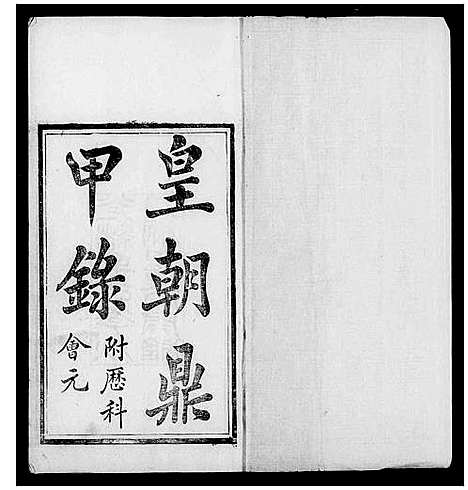 皇朝鼎
甲錄
附歷科
會元